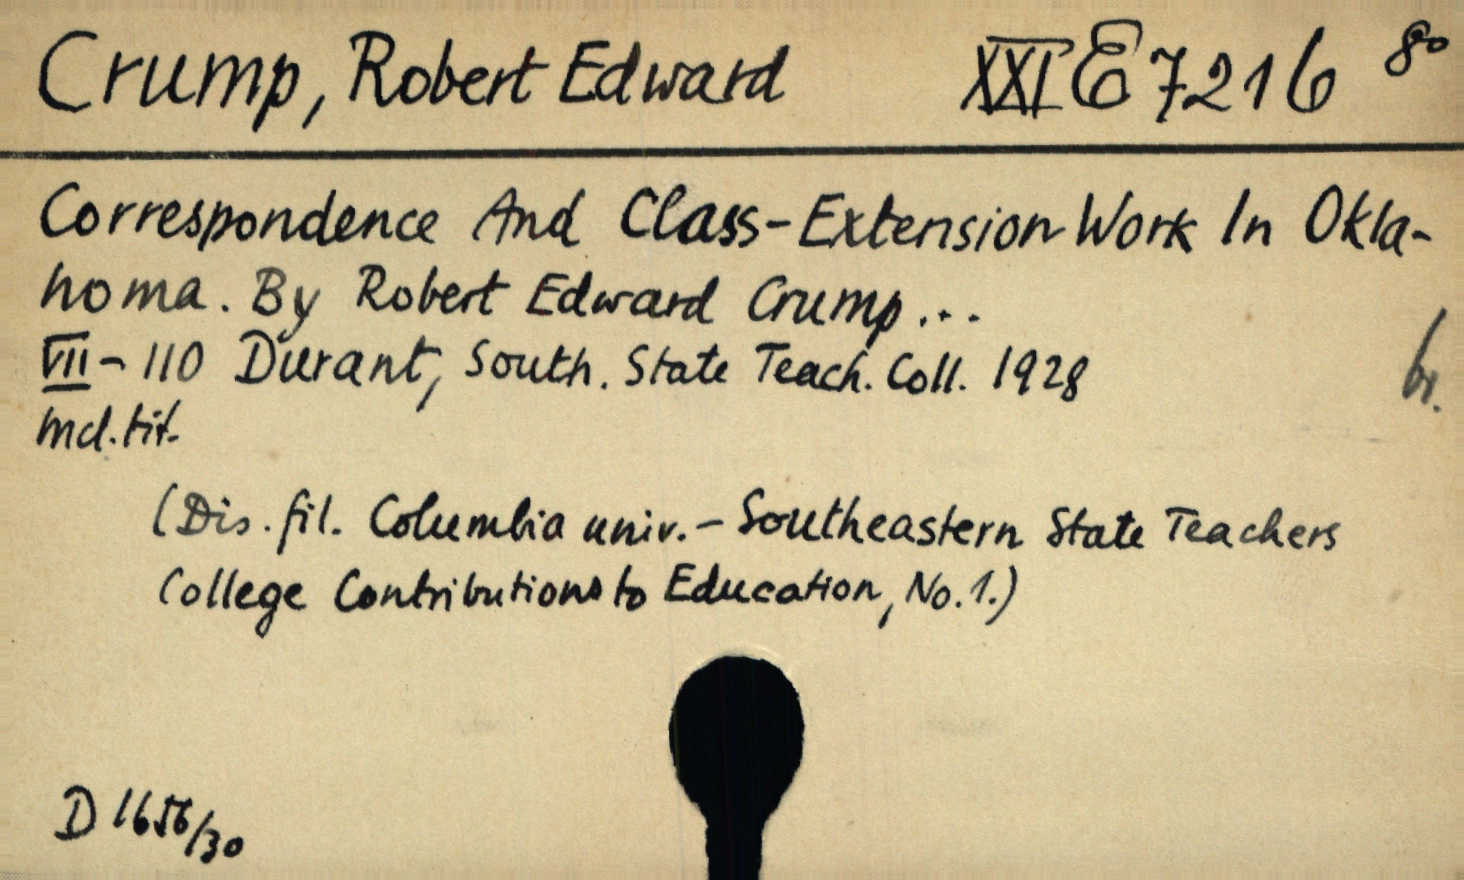 Crump, Robert Edward XXI E 7216 8°
Correspondence And Class-Extension Work In Okla-
homa. By Robert Edward Crump...
VII-110 Durant, South. State Teach. Coll. 1928 br.
Incl. tit.
(Dis. fil. Columbia univ. - Southeastern State Teachers
College Contributions to Education, No. 1.)
D 1656/30